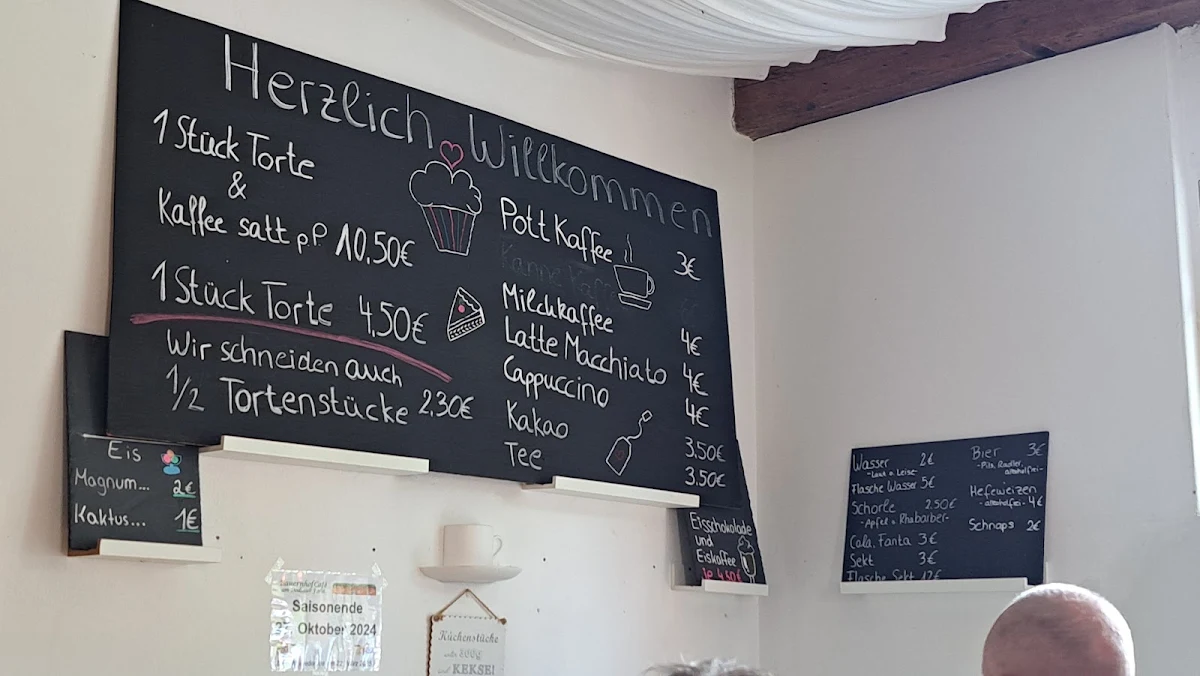 Herzlich Willkommen
1 Stück Torte
&
Kaffee satt pP 10,50€
1 Stück Torte 4,50€
Wir schneiden auch
1/2 Tortenstücke 2,30€
Pott Kaffee 3€
Kanne Kaffee
Milchkaffee 4€
Latte Macchiato 4€
Cappuccino 4€
Kakao 3,50€
Tee 3,50€
Eis
Magnum... 2€
Kaktus... 1€
Eisschokolade
und
Eiskaffee
je 4,50€
Wasser 2€
-Laut o. Leise-
Flasche Wasser 5€
Schorle 2,50€
-Apfel o. Rhabarber-
Cola, Fanta 3€
Sekt 3€
Flasche Sekt 12€
Bier 3€
-Pils, Radler,
alkoholfrei-
Hefeweizen
-alkoholfrei- 4€
Schnaps 2€
BauernhofCafé
Saisonende
Oktober 2024
Küchenstücke
und KEKSE!